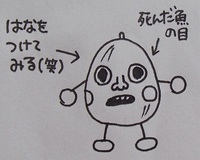 はなを
つけて
みる(笑)
死んだ魚
の目